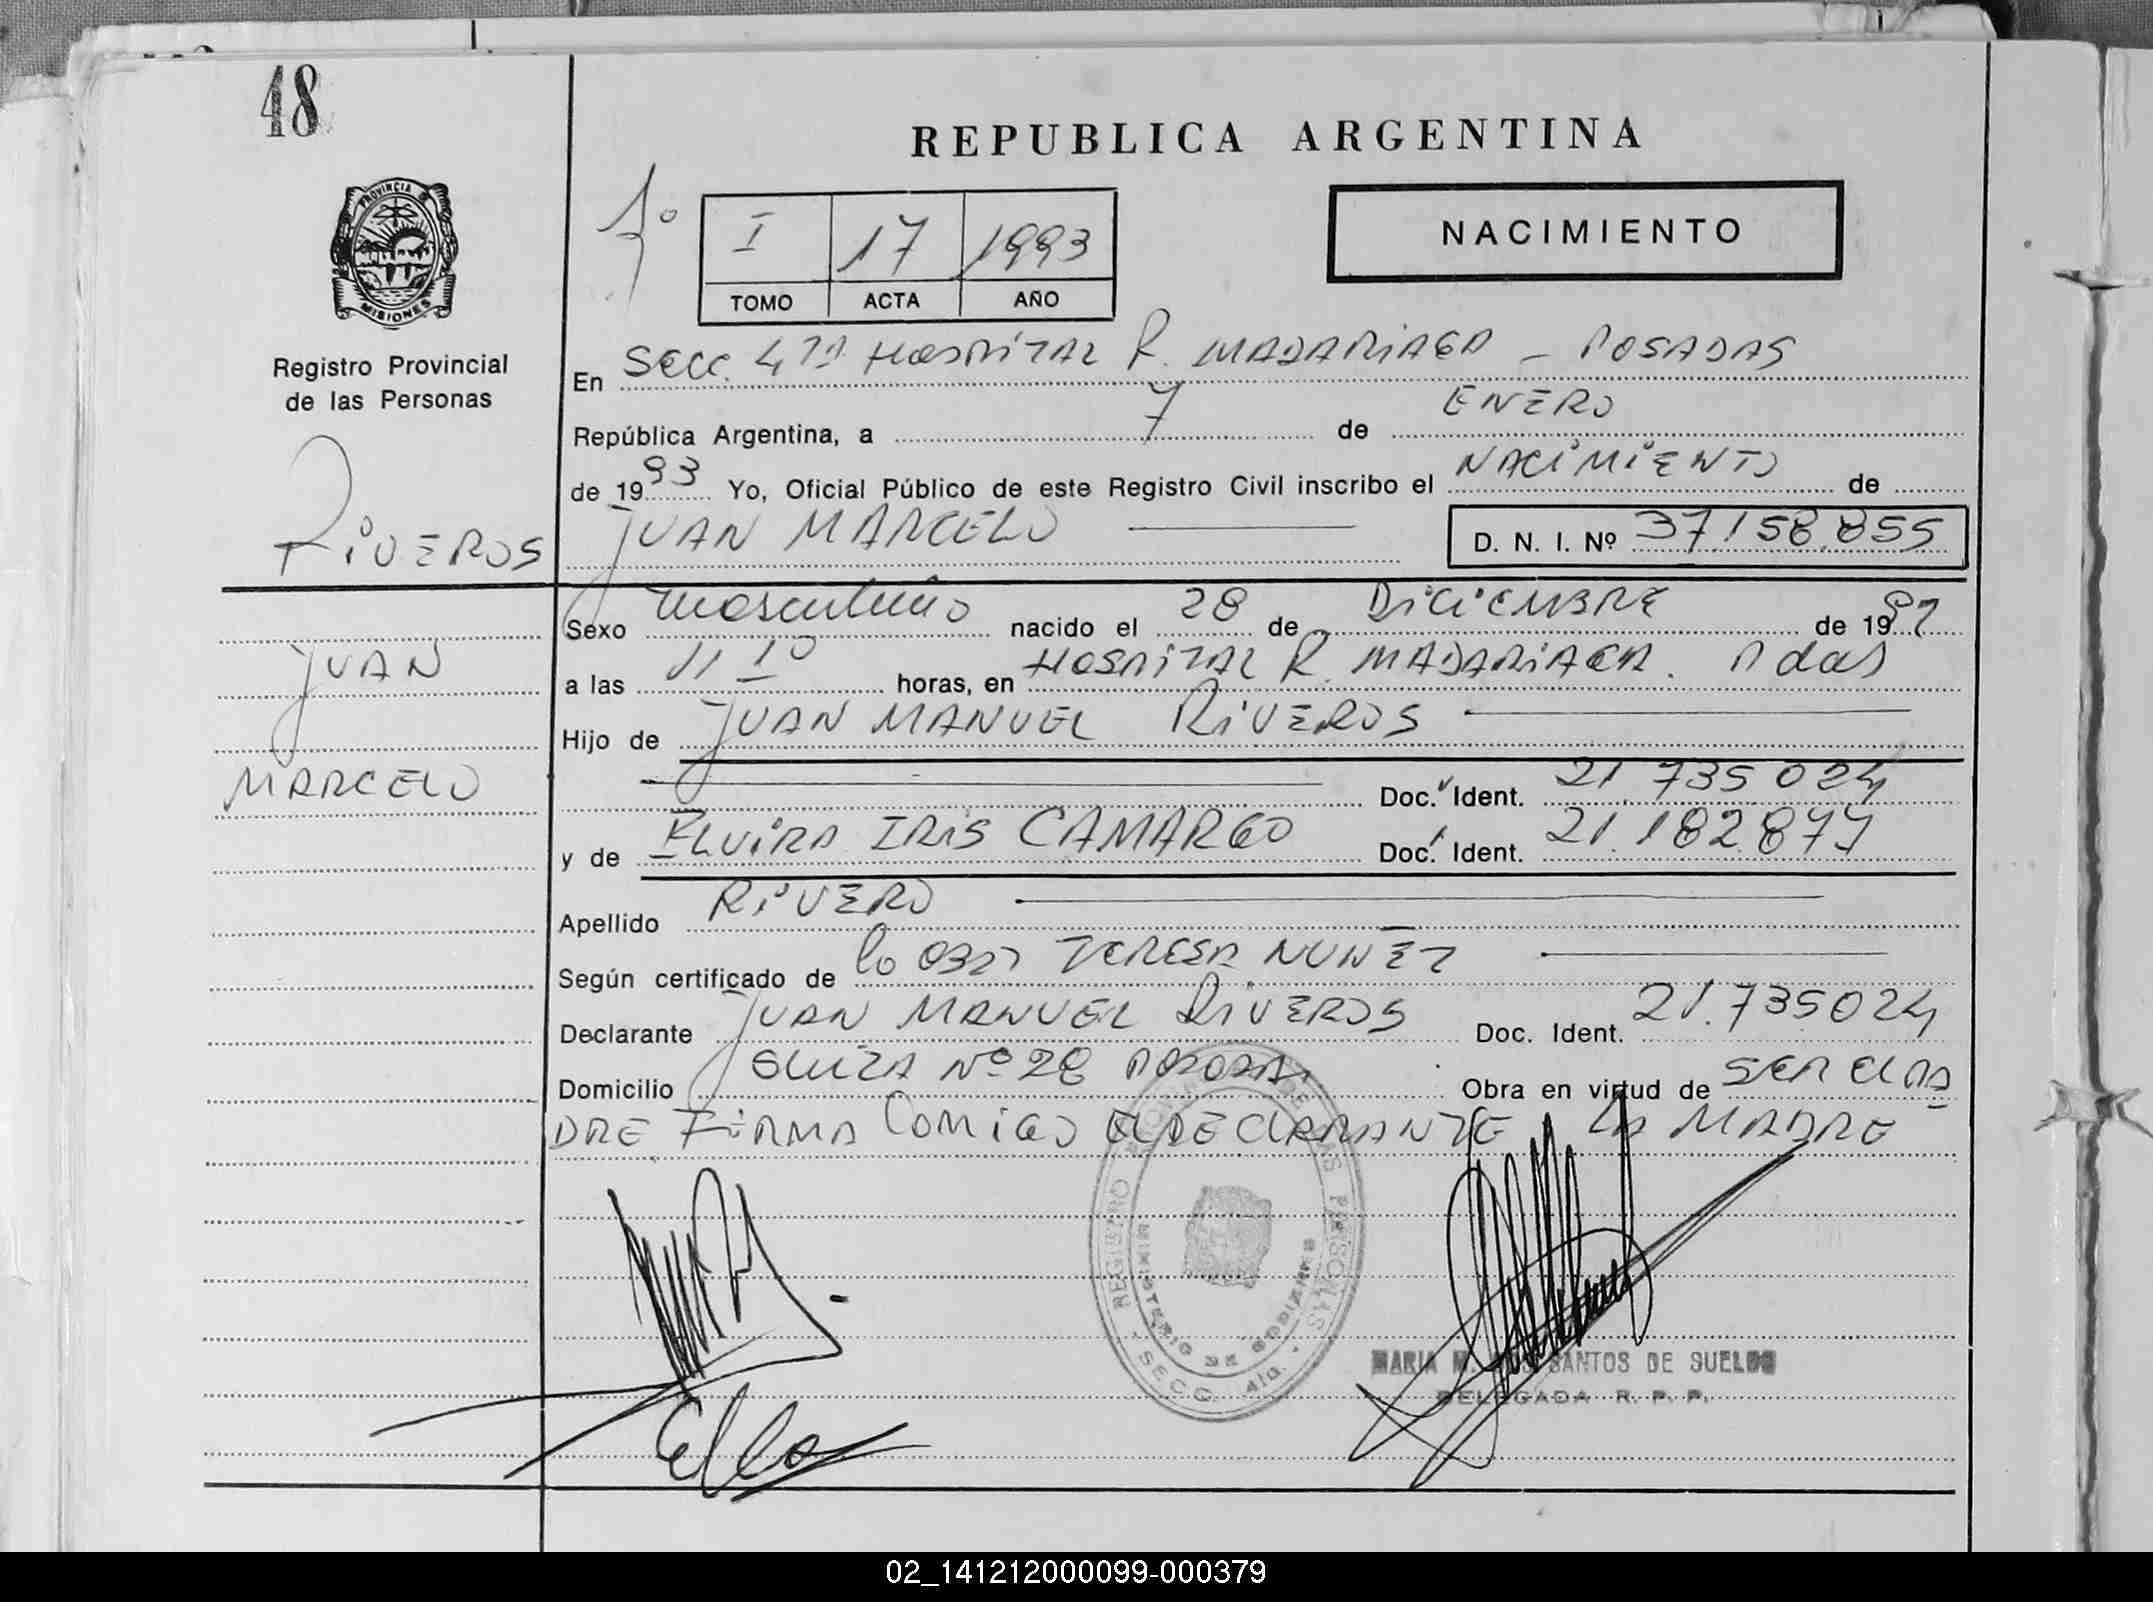 48
REPUBLICA ARGENTINA
PROVINCIA DE MISIONES
1º
I 17 1993
TOMO ACTA AÑO
NACIMIENTO
Registro Provincial
de las Personas
En SECC. 4ta HOSPITAL R. MADARIAGA – POSADAS
República Argentina, a 7 de ENERO
de 1993 Yo, Oficial Público de este Registro Civil inscribo el NACIMIENTO de
JUAN MARCELO D. N. I. Nº 37.158.855
RIVEROS
JUAN
MARCELO
Sexo masculino nacido el 28 de DICIEMBRE de 1992
a las 11 10 horas, en HOSPITAL R. MADARIAGA. Pdas
Hijo de JUAN MANUEL RIVEROS
Doc. Ident. 21.735024
y de ELVIRA IRIS CAMARGO Doc. Ident. 21.182.877
Apellido RIVERO
Según certificado de TERESA NUÑEZ
Declarante JUAN MANUEL RIVEROS Doc. Ident. 21.735024
Domicilio SUIZA Nº 28 Obra en virtud de SER EL PA
DRE FIRMA CONMIGO EL DECLARANTE LA MADRE
REGISTRO DE LAS PERSONAS
MINISTERIO DE GOBIERNO
- SECC. 4ta. -
MARIA M. DOS SANTOS DE SUELDO
DELEGADA R. P. P.
02_141212000099-000379